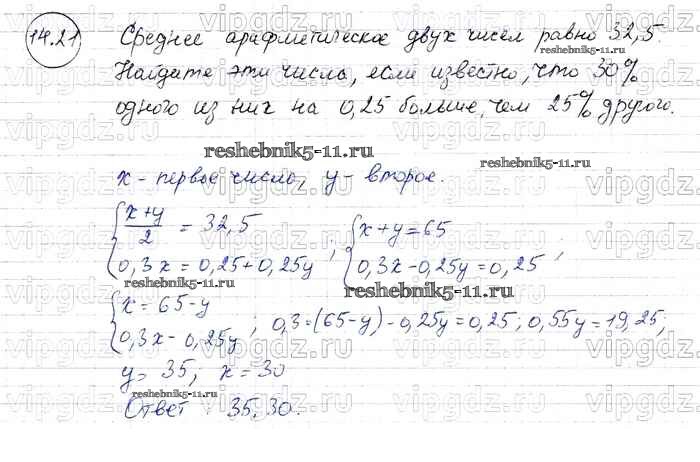 14.21 Среднее арифметическое двух чисел равно 32,5.
Найдите эти числа, если известно, что 30%
одного из них на 0,25 больше, чем 25% другого.
x - первое число, y - второе.
{ (x+y)/2 = 32,5
0,3x = 0,25+0,25y ; { x+y=65
0,3x-0,25y=0,25 ;
{ x=65-y
0,3x-0,25y ; 0,3·(65-y)-0,25y=0,25; 0,55y=19,25;
y= 35, x=30
Ответ: 35,30.
reshebnik5-11.ru
reshebnik5-11.ru
reshebnik5-11.ru
reshebnik5-11.ru
reshebnik5-11.ru
reshebnik5-11.ru
vipgdz.ru